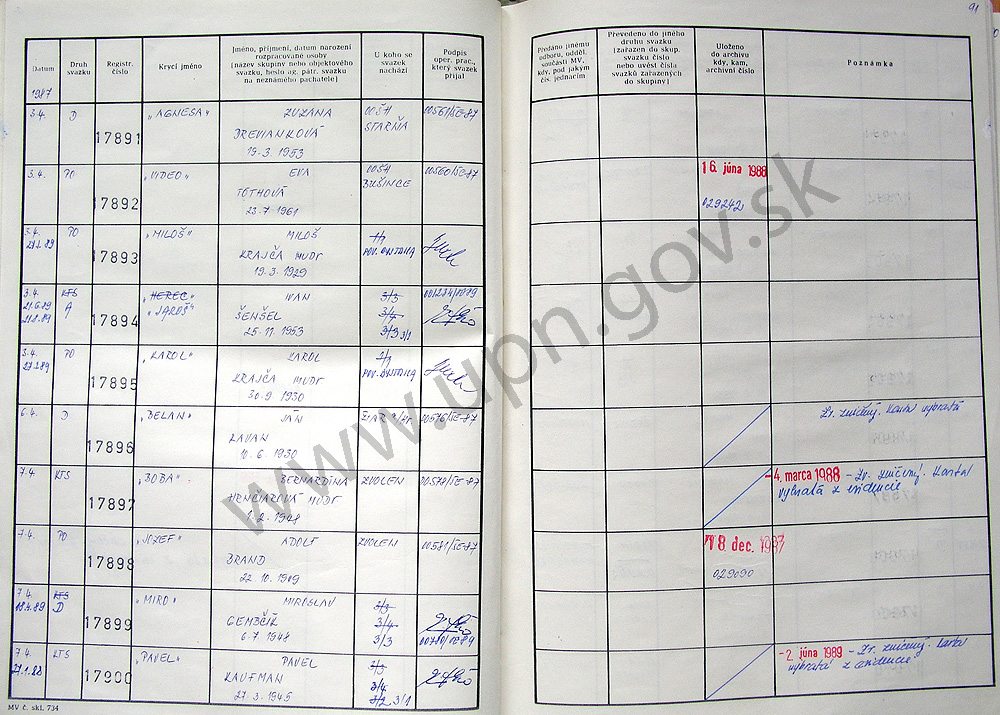 91
Datum
Druh svazku
Registr. číslo
Krycí jméno
Jméno, příjmení, datum narození
rozpracované osoby
(název skupiny nebo objektového
svazku, heslo ag. pátr. svazku
na neznámého pachatele)
U koho se
svazek
nachází
Podpis
oper. prac.,
který svazek
přijal
Předáno jinému
odboru, odděl.
součásti MV,
kdy, pod jakým
čís. jednacím
Převedeno do jiného
druhu svazku
(zařazen do skup.
svazku číslo
nebo uvést čísla
svazků zařazených
do skupiny)
Uloženo
do archivu
kdy, kam,
archivní číslo
Poznámka
1987
3.4. D 17891 "AGNESA" ZUZANA
DREVIANKOVÁ
19.3.1953
STARŇA
00561/ŠE-87
3.4. PO 17892 "VIDEO" EVA
TÓTHOVÁ
23.7.1961
BUŠINCE
00560/ŠE-87
16. júna 1988
029242
3.4. PO 17893 "MILOŠ" MILOŠ
KRAJČA MUDr
19.3.1929
3.4. KTS 17894 "HEREC" IVAN
A "JAROŠ"
ŠENŠEL
25.11.1953
3/3
3/4
3/3 3/1
3.4. PO 17895 "KAROL" KAROL
KRAJČA MUDr
30.9.1930
6.4. D 17896 "BELAN" JÁN
LAVAN
10.6.1930
00576/ŠE-87
Zv. zničený. Karta vybratá
7.4. KTS 17897 "BOBA" BERNARDÍNA
HRNČIAROVÁ MUDr
1.2.1948
ZVOLEN
00578/ŠE-87
- 4. marca 1988 - Zv. zničený. Karta
vybratá z evidencie
7.4. PO 17898 "JOZEF" ADOLF
BRAND
22.10.1909
ZVOLEN
00581/ŠE-87
18 dec. 1987
029090
7.4. KTS 17899 "MIRO" MIROSLAV
18.4.89 D
GEMBČÍK
6.7.1948
3/3
3/4
3/3
7.4. KTS 17900 "PAVEL" PAVEL
27.1.88
KAUFMAN
27.3.1945
3/3
3/4
3/2 3/1
- 2. júna 1989 - Zv. zničený. Karta
vybratá z evidencie
MV č. skl. 734
www.upn.gov.sk